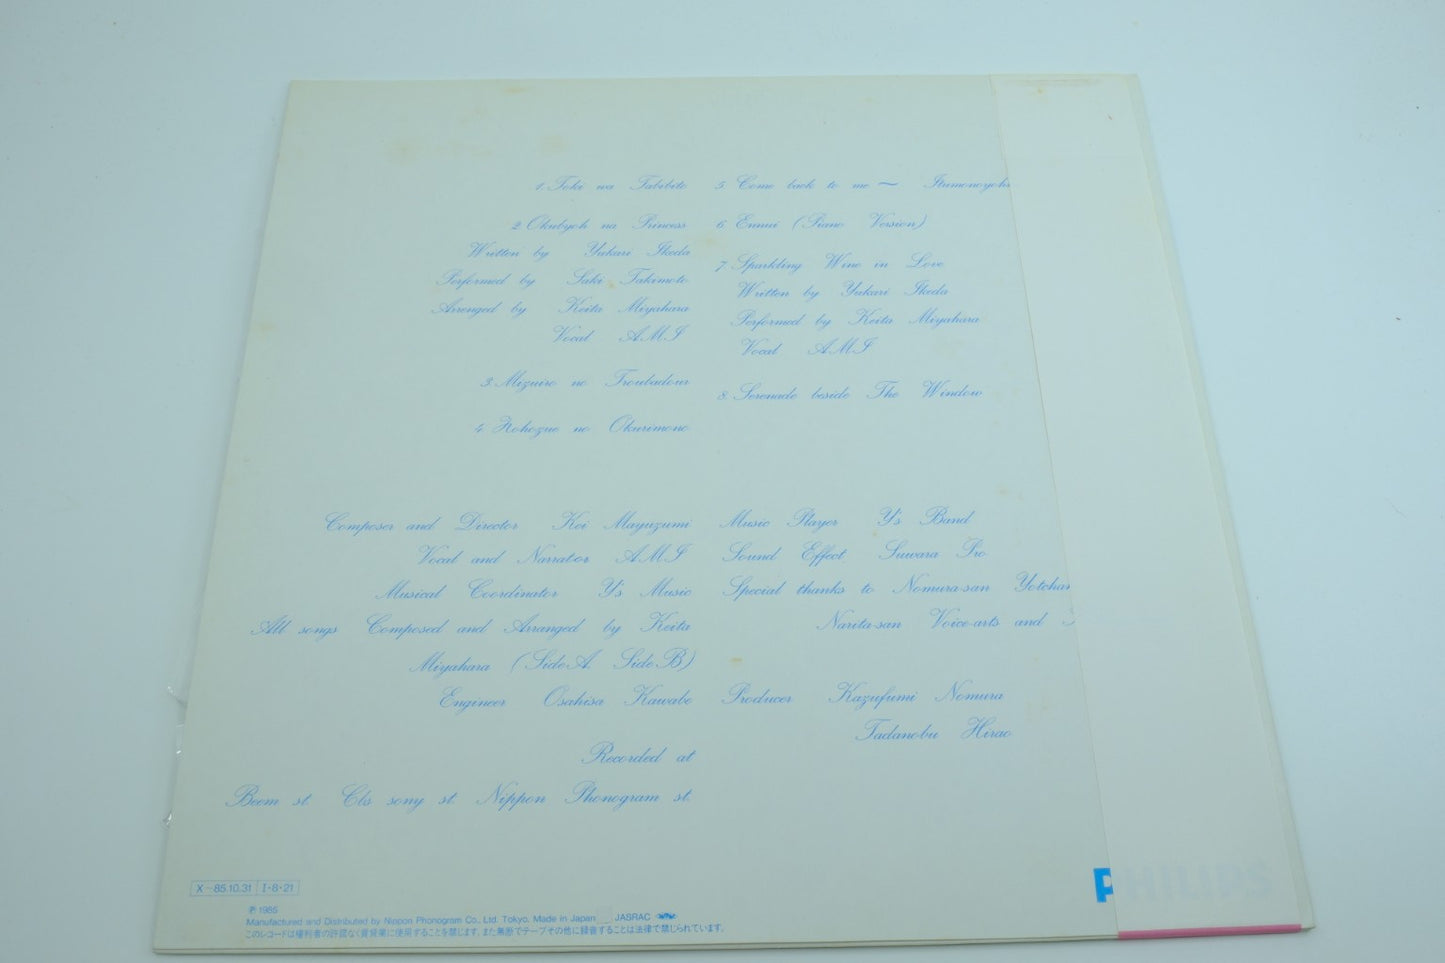 1. Toki wa Tabibito
2. Okubyoh na Princess
Written by Yukari Ikeda
Performed by Saki Takimoto
Arrenged by Keita Miyahara
Vocal A.M.I
3. Mizuiro no Troubadour
4. Kohozue no Okurimono
5. Come back to me ~
6. Ennui (Piano Version)
7. Sparkling Wine in Love
Written by Yukari Ikeda
Performed by Keita Miyahara
Vocal A.M.I
8. Serenade beside The Window
Composer and Director Kei Mayuzumi
Vocal and Narrator A.M.I
Musical Coordinator Y's Music
All songs Composed and Arranged by Keita
Miyahara (Side A. Side B)
Engineer Osahisa Kawabe
Recorded at
Beem st. Cbs sony st. Nippon Phonogram st.
Music Player Y's Band
Sound Effect Suwara Pro
Special thanks to Nomura-san Yotchan
Narita-san Voice-arts and
Producer Kazufumi Nomura
Tadanobu Hirao
X-85.10.31 I·8·21
℗ 1985
Manufactured and Distributed by Nippon Phonogram Co., Ltd. Tokyo. Made in Japan JASRAC
このレコードは権利者の許諾なく賃貸業に使用することを禁じます。また無断でテープその他に録音することは法律で禁じられています。
PHILIPS